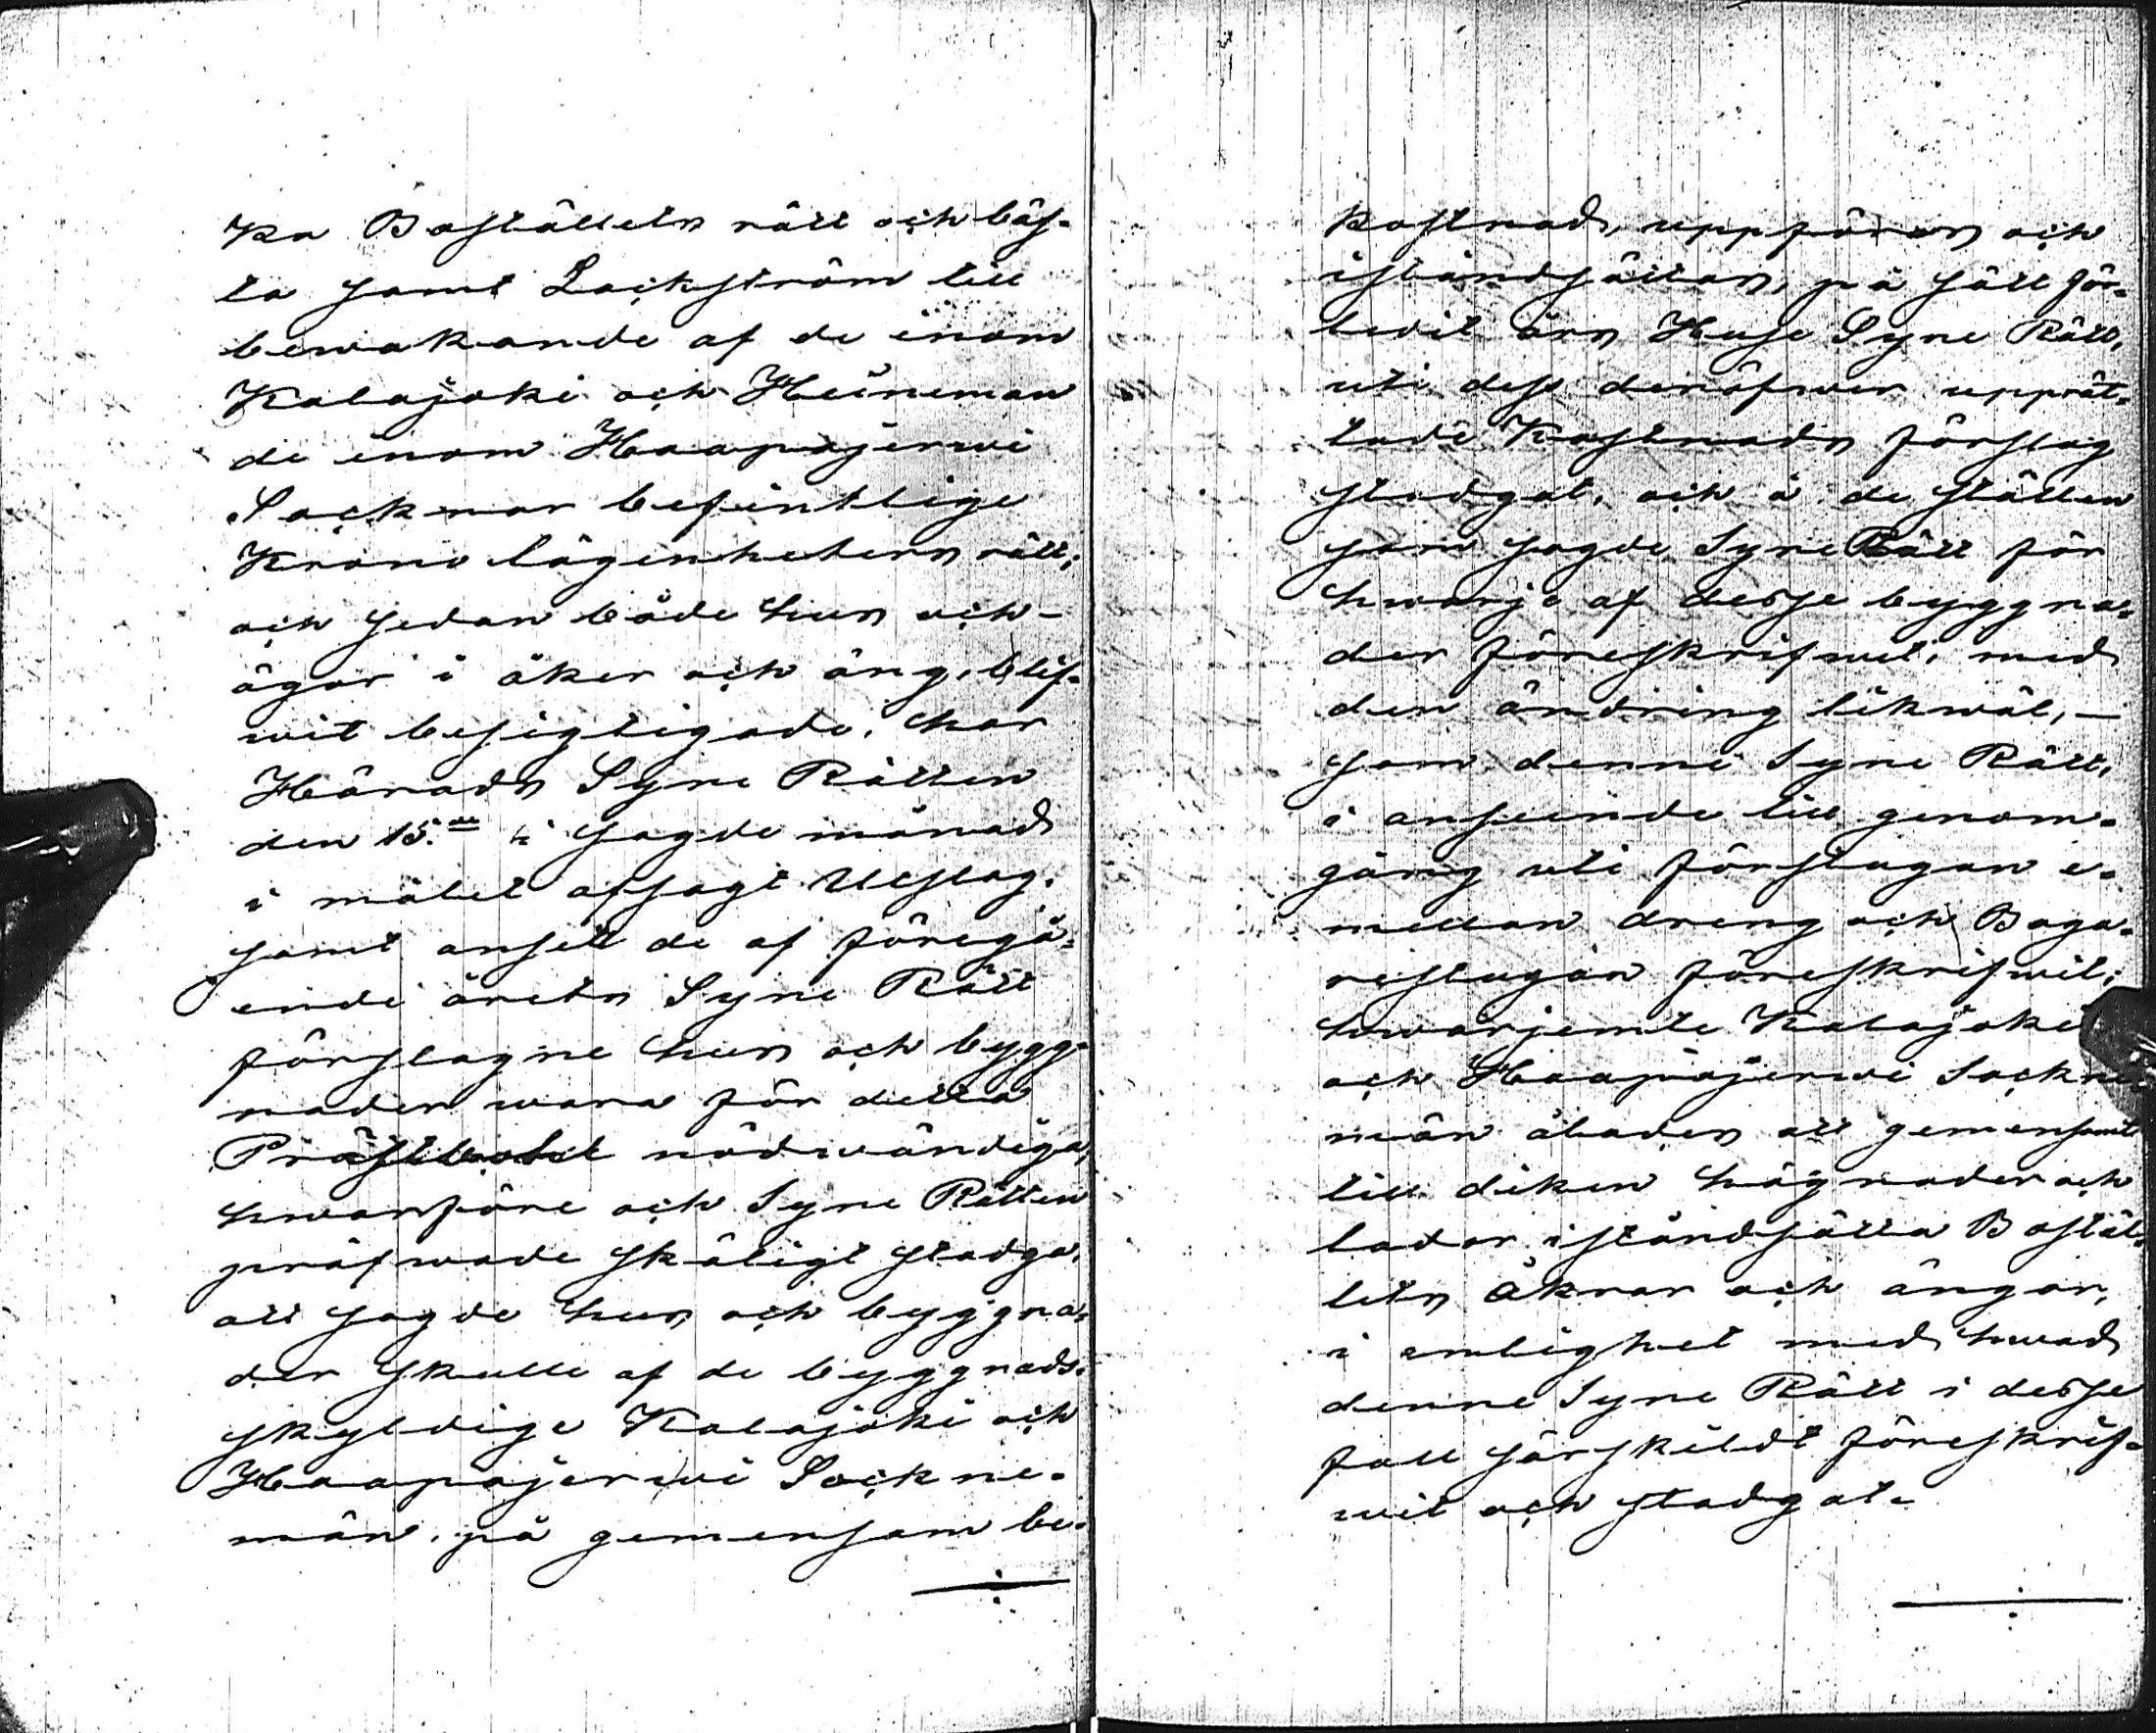 ka Boställets rätt och bäs-
ta samt Lackström till
bewakande af de inom
Kalajoki och Heineman
de inom Haapajerwi
Socknar befintlige
Krono lägenheters rätt;
och sedan både hus och
ägor i åker och äng, blif-
wit besigtigade, har
Härads Syne Rätten
den 15.de i sagde månad
i målet afsagt Utslag,
samt ansett de af föregå-
ende årets Syne Rätt
förslagne hus och bygg-
nader wara för detta
Präste nödwändiga,
hwarföre och Syne Rätten
pröfwade skäligt stadga,
att sagde hus och byggna-
der skulle af de byggnads-
skyldige Kalajoki och
Haapajerwi Sockne-
män, på gemensam be-
kostnad, uppföras och
iståndsättas, på sätt för-
ledit års Huse Syne Rätt,
uti dess deröfwer upprät-
tade Kostnads förslag
stadgat, och å de ställen
som sagde Syne Rätt för
hwarje af desse byggna-
der föreskrifwit, med
den ändring likwäl,
som denne Syne Rätt,
i anseende till genom-
gång uti förstugan e-
mellan dreng och Baga-
restugan föreskrifwit;
hwarjemte Kalajoki
och Haapajerwi Sockne
män ålades att gemensamt
till diken hägnader och
lador iståndsätta Bostäl-
lets åkrar och ängar,
i enlighet med hwad
denne Syne Rätt i desse
fall särskildt föreskrif-
wit och stadgat.